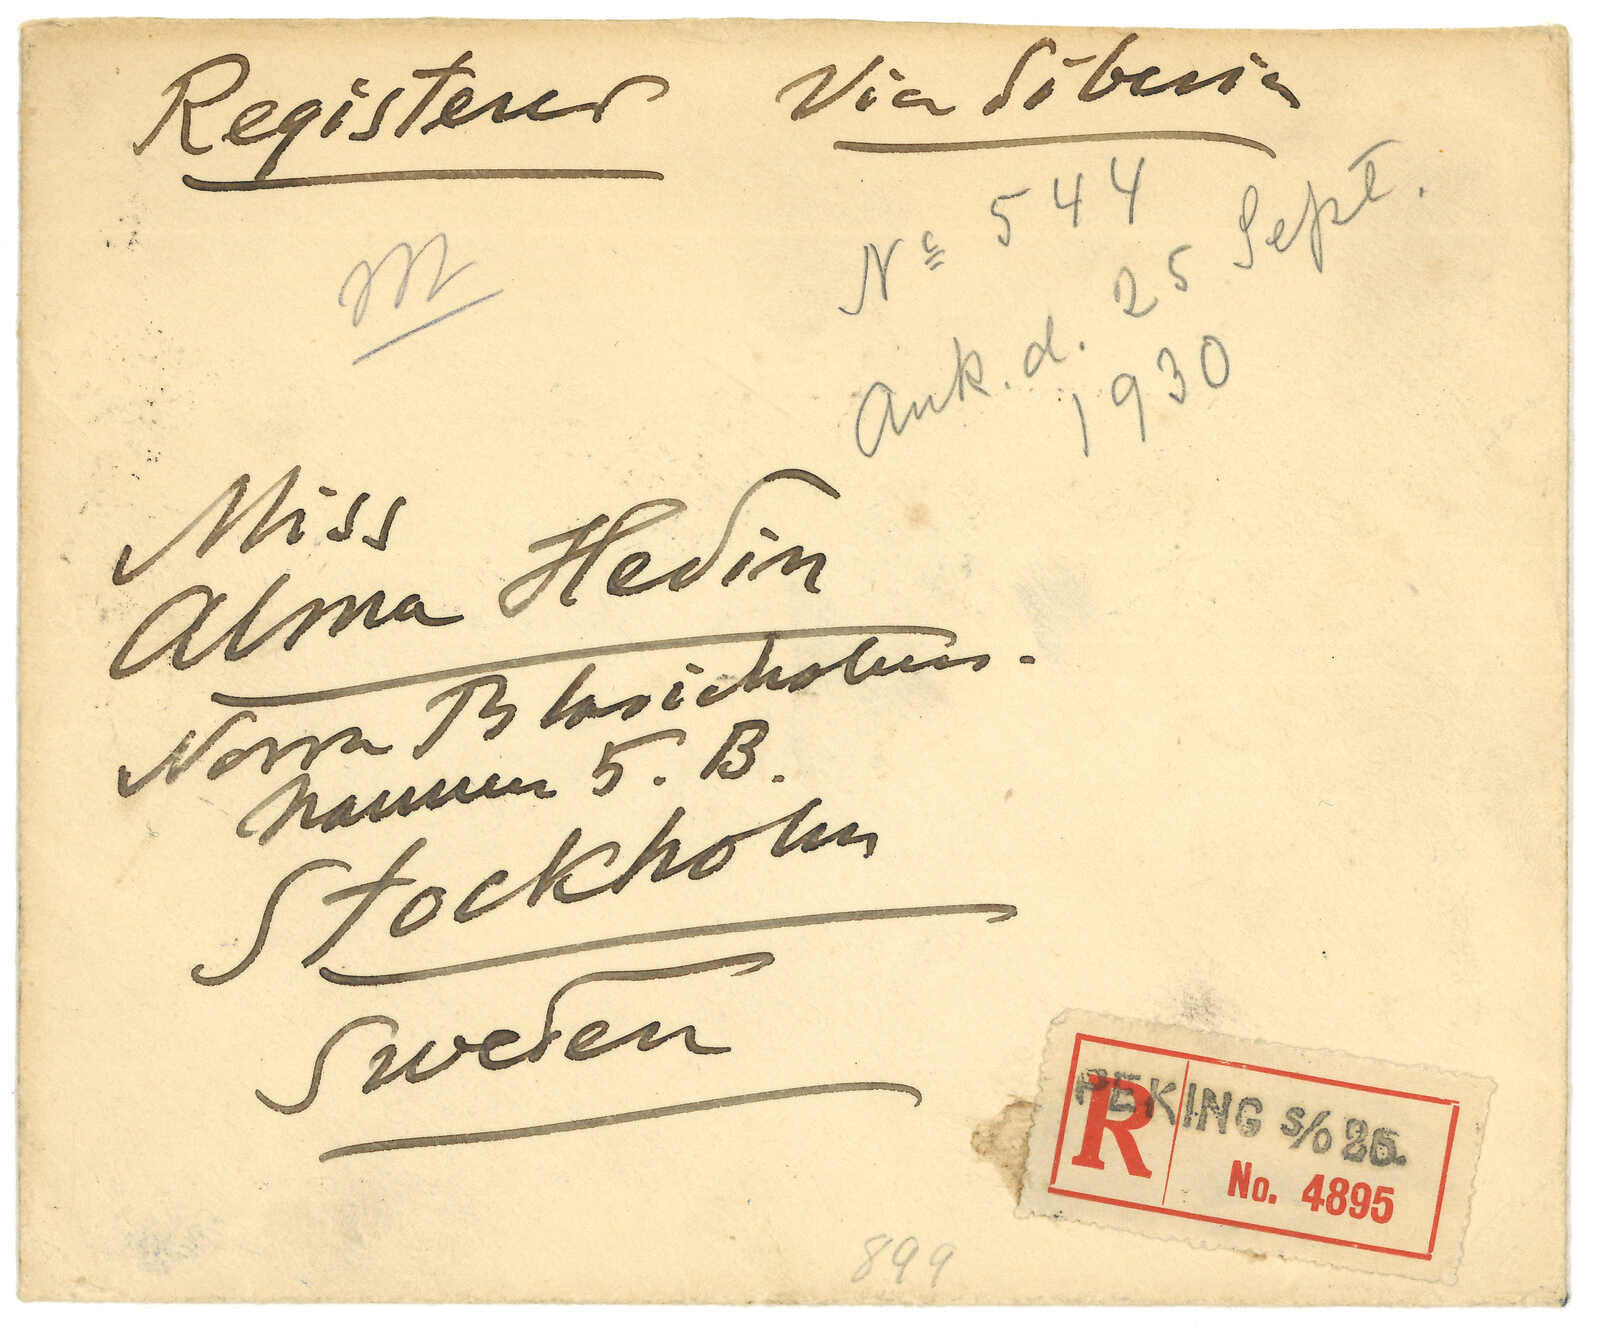 Registered Via Siberia
No 544
Ank. d. 25 Sept.
1930
Miss
Alma Hedin
Norra Blasieholms-
hamnen 5. B.
Stockholm
Sweden
R PEKING S/O
No. 4895
899